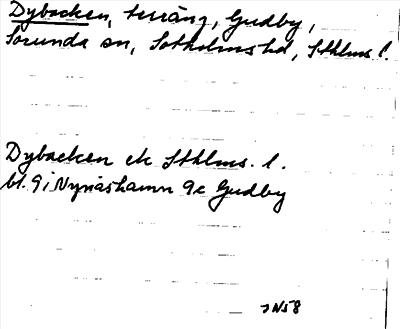 Dybacken, terräng, Gudby,
Sorunda sn, Sotholms hd, Sthlms l.
Dybacken ek Sthlms. l.
bl. 9 i Nynäshamn 9c Gudby
JN58